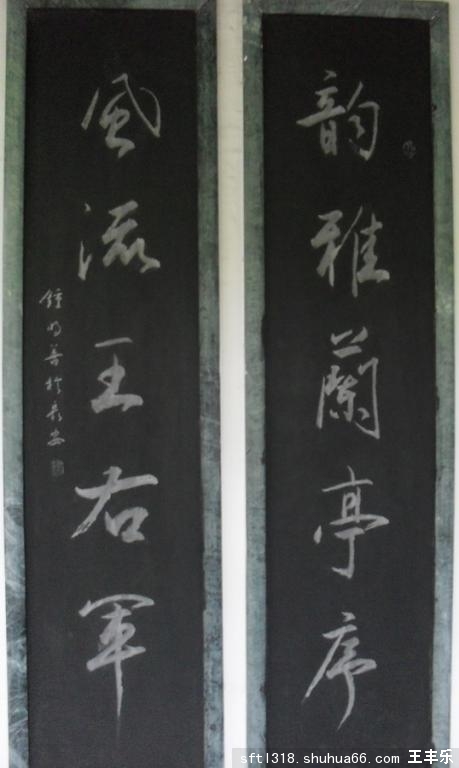 韵雅蘭亭序
風流王右軍
鍾明善於長安
sftl318.shuhua66.com 王丰乐